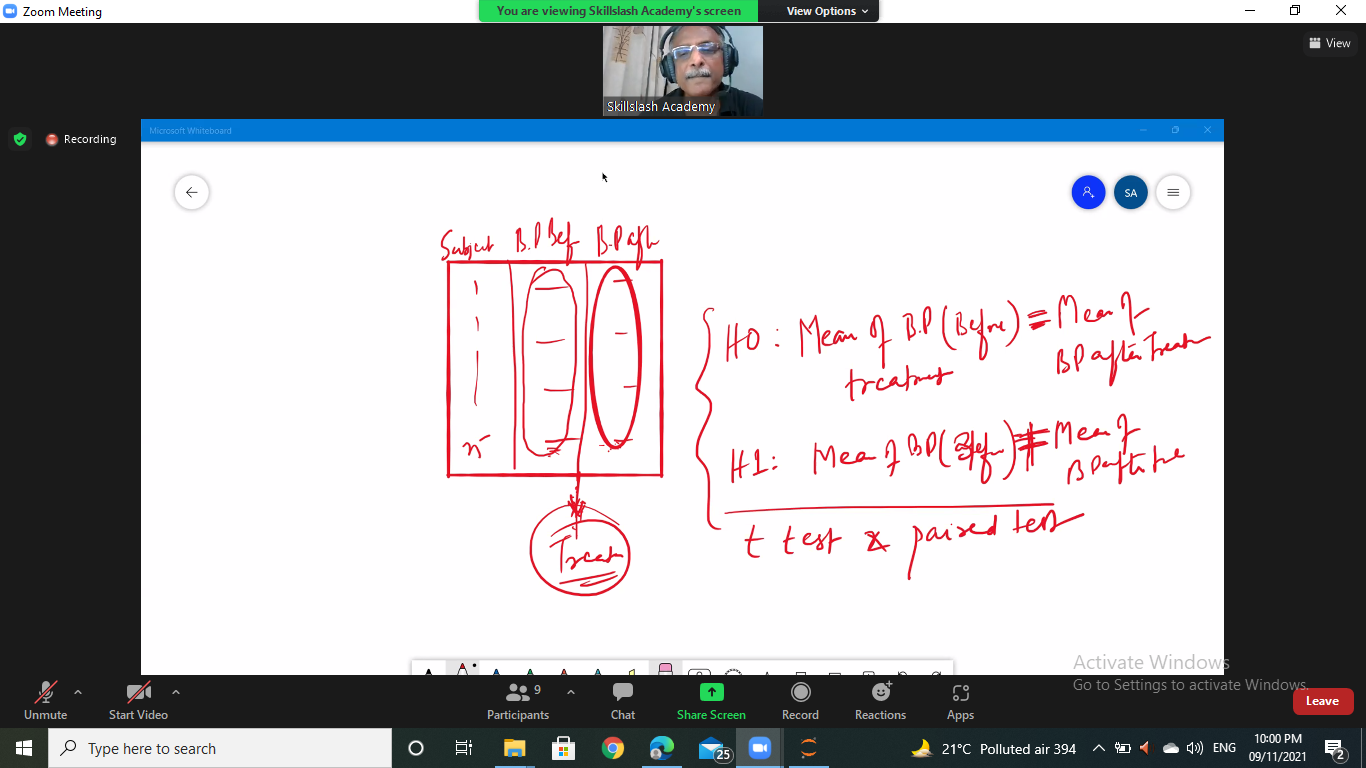 Zoom Meeting
You are viewing Skillslash Academy's screen
View Options
View
Skillslash Academy
Recording
Microsoft Whiteboard
SA
Subject B.P Bef B.P aft
1
1
n
Treat
H0 : Mean of B.P (Before) = Mean of
treatment BP after Treat
H1: Mean of BP (Before) ≠ Mean of
BP after tre
t test & paired test
Activate Windows
Go to Settings to activate Windows.
Unmute
Start Video
9
Participants
Chat
Share Screen
Record
Reactions
Apps
Leave
Type here to search
25
21°C Polluted air 394
ENG
10:00 PM
09/11/2021
2